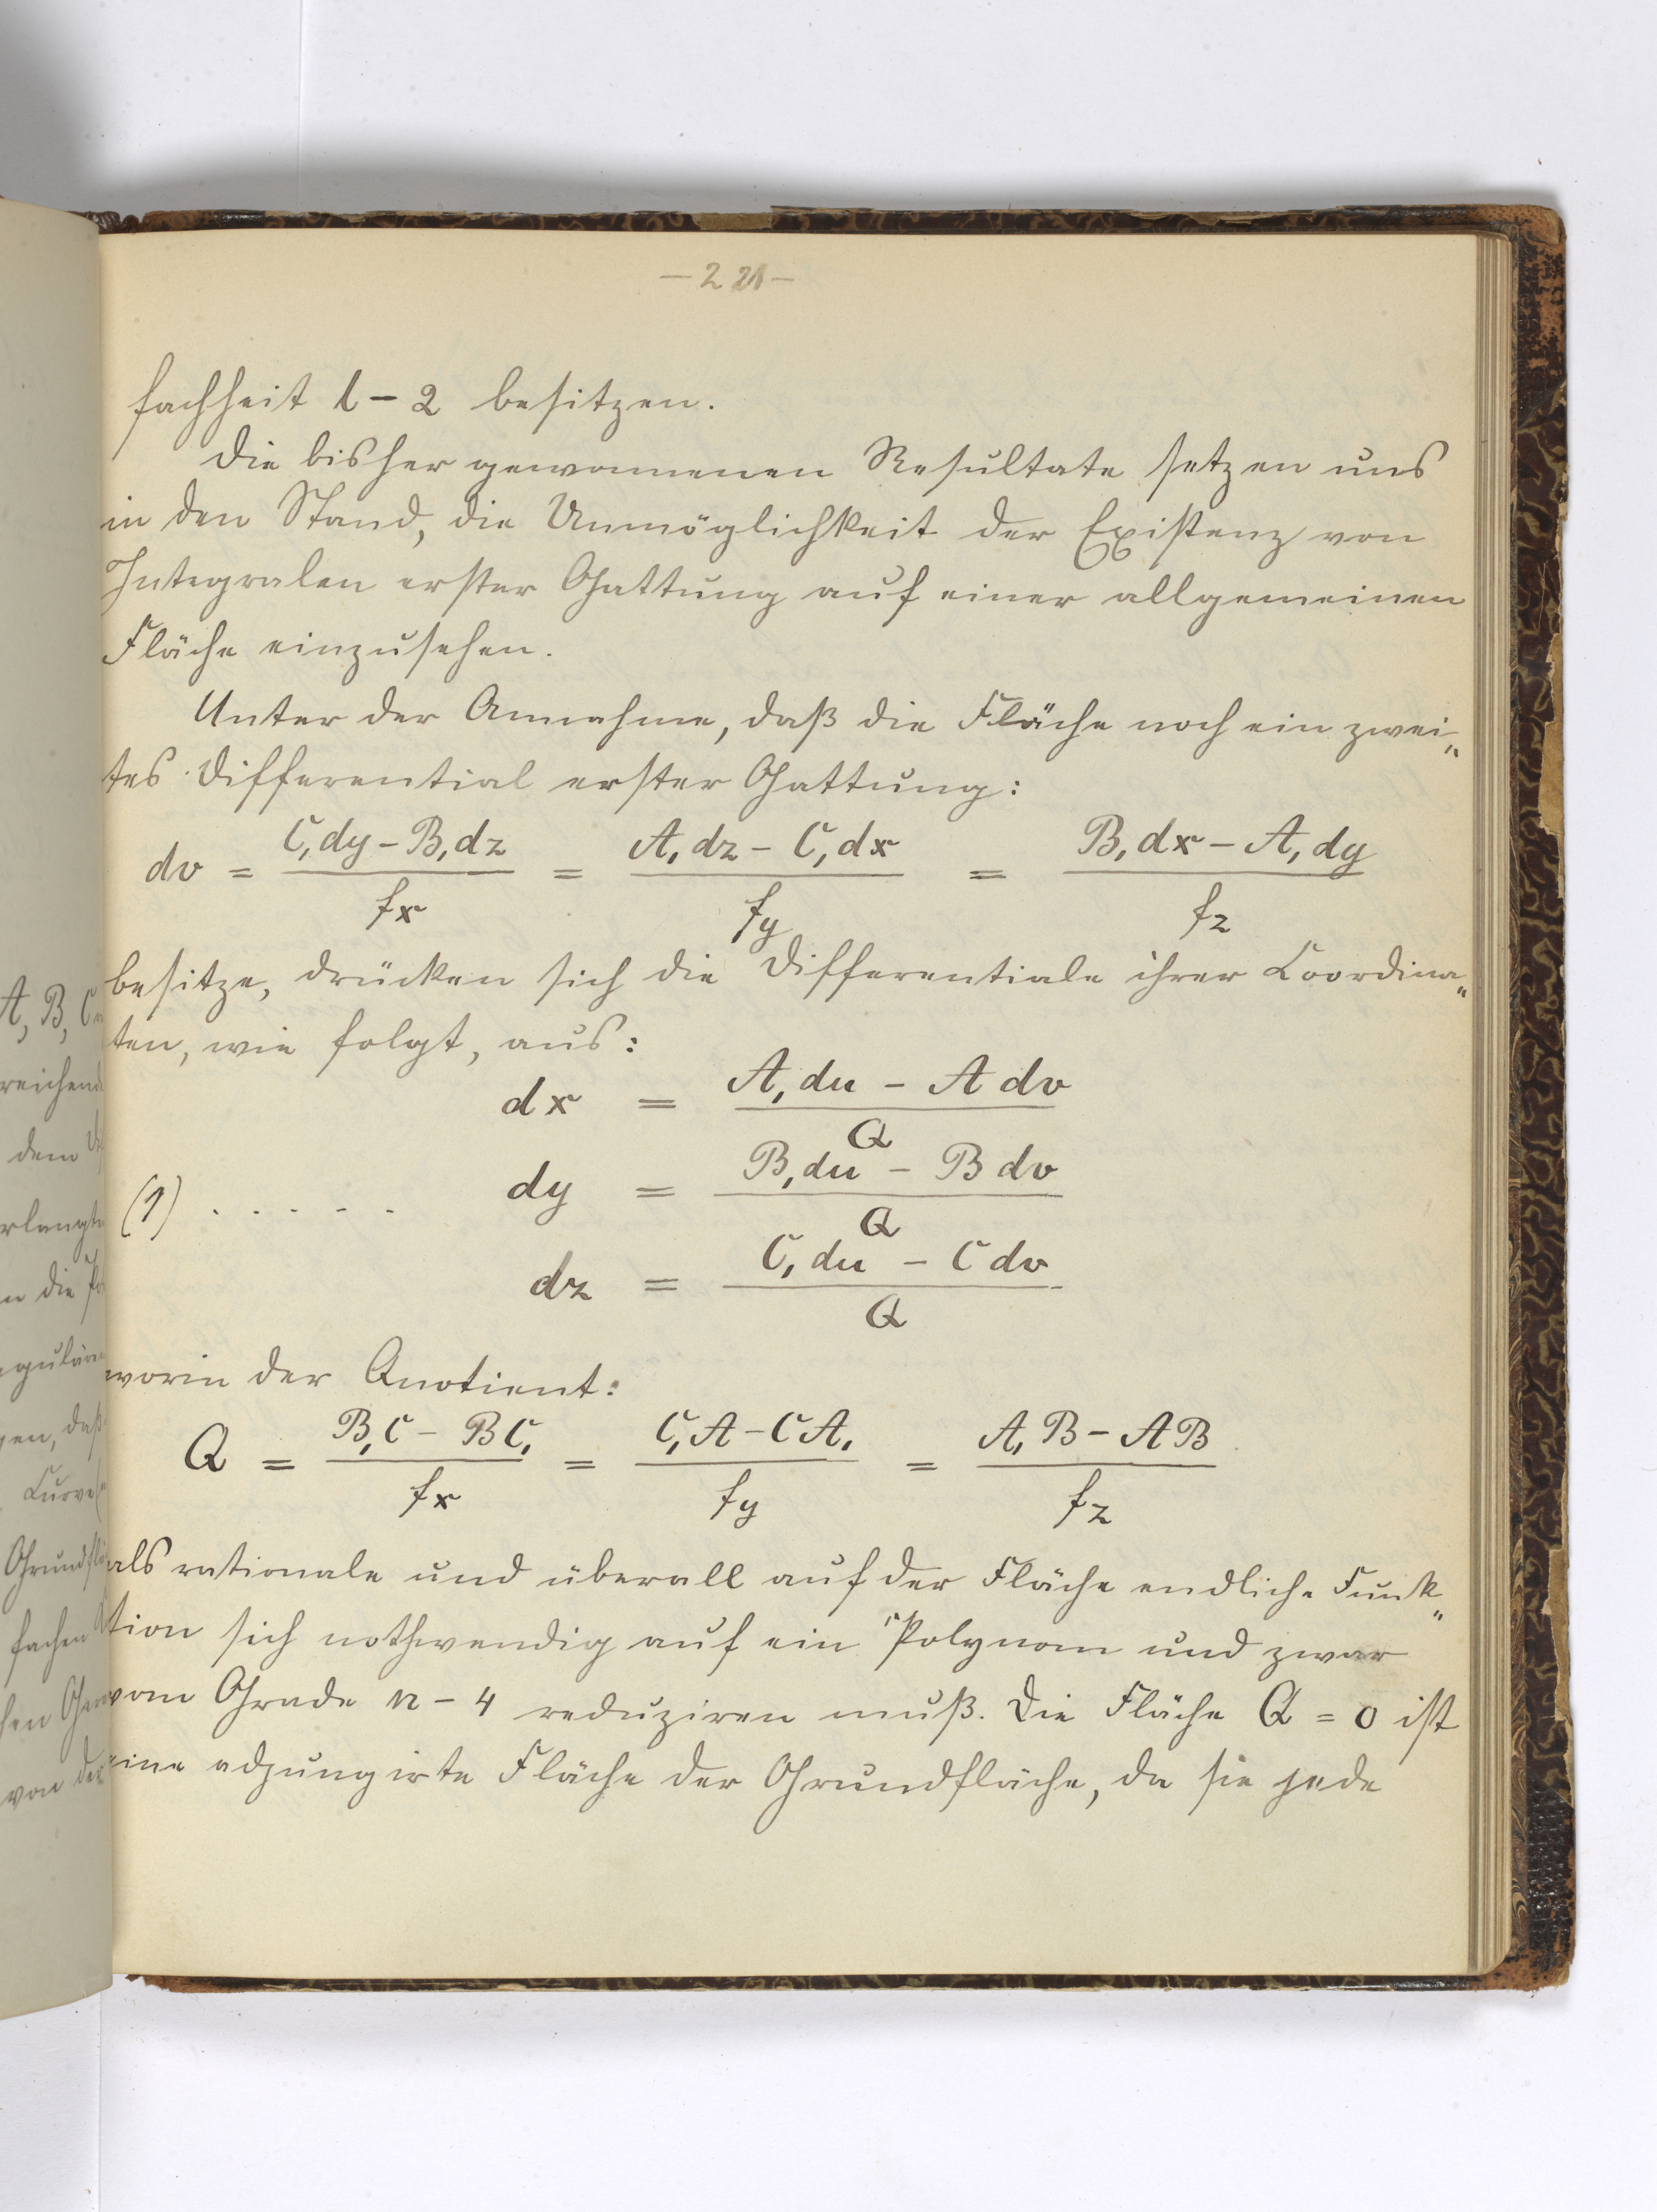 — 221 —
fachheit l – 2 besitzen.
Die bisher gewonnenen Resultate setzen uns
in den Stand, die Unmöglichkeit der Existenz von
Integralen erster Gattung auf einer allgemeinen
Fläche einzusehen.
Unter der Annahme, daß die Fläche noch ein zwei„
tes Differential erster Gattung:
dv = (C, dy – B, dz) / fx = (A, dz – C, dx) / fy = (B, dx – A, dy) / fz
besitze, drücken sich die Differentiale ihrer Coordina„
ten, wie folgt, aus:
dx = (A, du – A dv) / Q
(1) . . . . . dy = (B, du – B dv) / Q
dz = (C, du – C dv) / Q
worin der Quotient:
Q = (B, C – B C,) / fx = (C, A – C A,) / fy = (A, B – A B) / fz
als rationale und überall auf der Fläche endliche Funk„
tion sich nothwendig auf ein Polynom und zwar
vom Grade n – 4 reduziren muß. Die Fläche Q = 0 ist
eine adjungirte Fläche der Grundfläche, da sie jede
A, B, C
reichend
dem
erlangt
n die
egulären
gen, daß
Curve
Grundflä
fachen
hen
von der